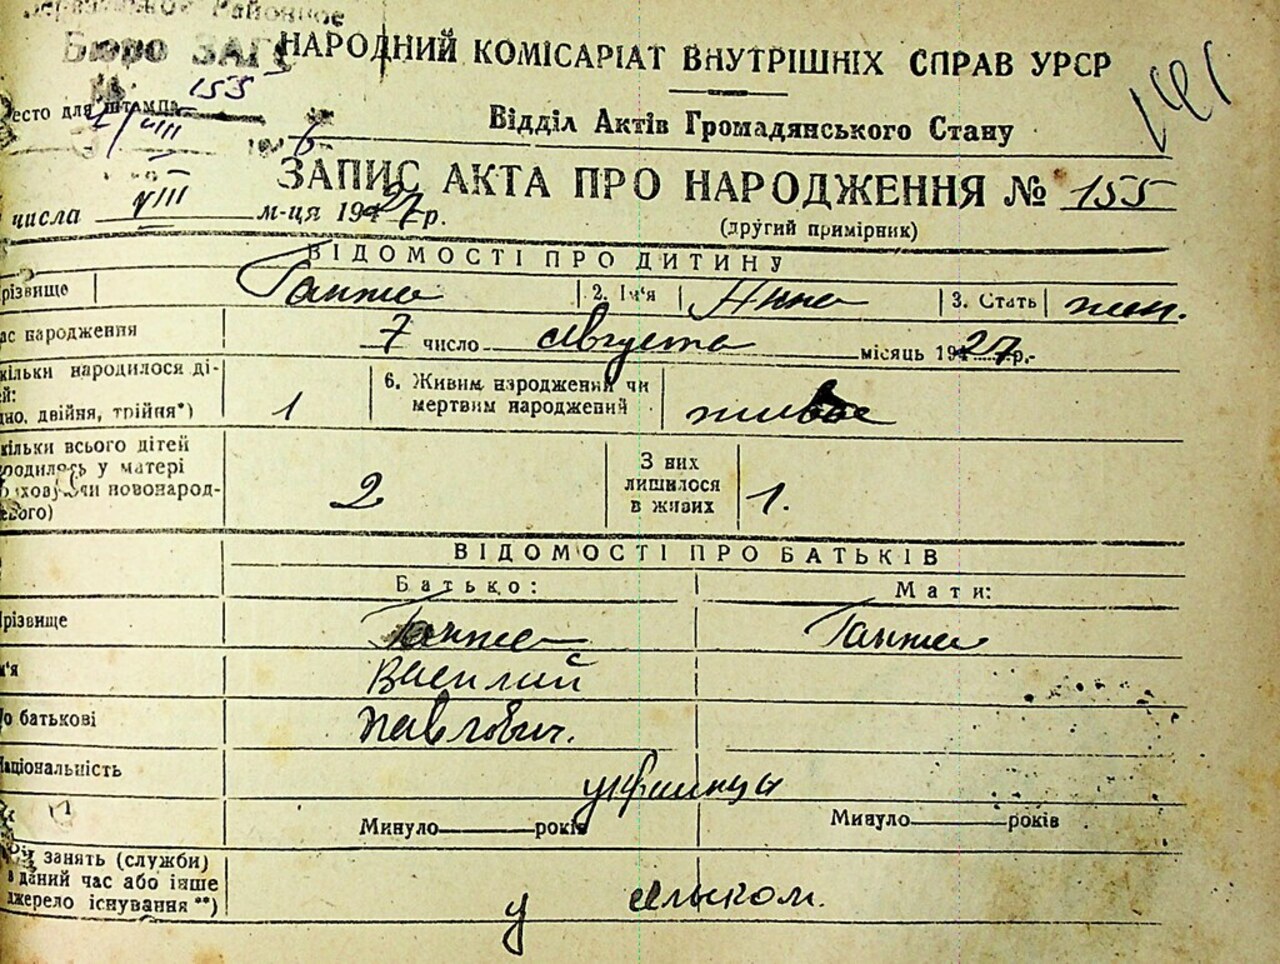 Районное
Бюро ЗАГС
НАРОДНИЙ КОМІСАРІАТ ВНУТРІШНІХ СПРАВ УРСР
141
место для штампа 155
VIII
6
Відділ Актів Громадянського Стану
ЗАПИС АКТА ПРО НАРОДЖЕННЯ № 155
числа VIII м-ця 1927 р.
(другий примірник)
ВІДОМОСТІ ПРО ДИТИНУ
різвище Ганжа 2. Ім'я Анна 3. Стать жен.
ас народження 7 число августа місяць 1927 р.
кільки народилося ді-
ей:
дно, двійня, трійня*) 1 6. Живим народжений чи
мертвим народжений живое
кільки всього дітей
родилось у матері
новонарод-
еного) 2 З них
лишилося
в живих 1.
ВІДОМОСТІ ПРО БАТЬКІВ
Батько: Мати:
Прізвище Ганжа Ганжа
м'я Василий
По батькові Павлович.
Національність украинцы
Минуло років Минуло років
занять (служби)
в даний час або інше
джерело існування **)